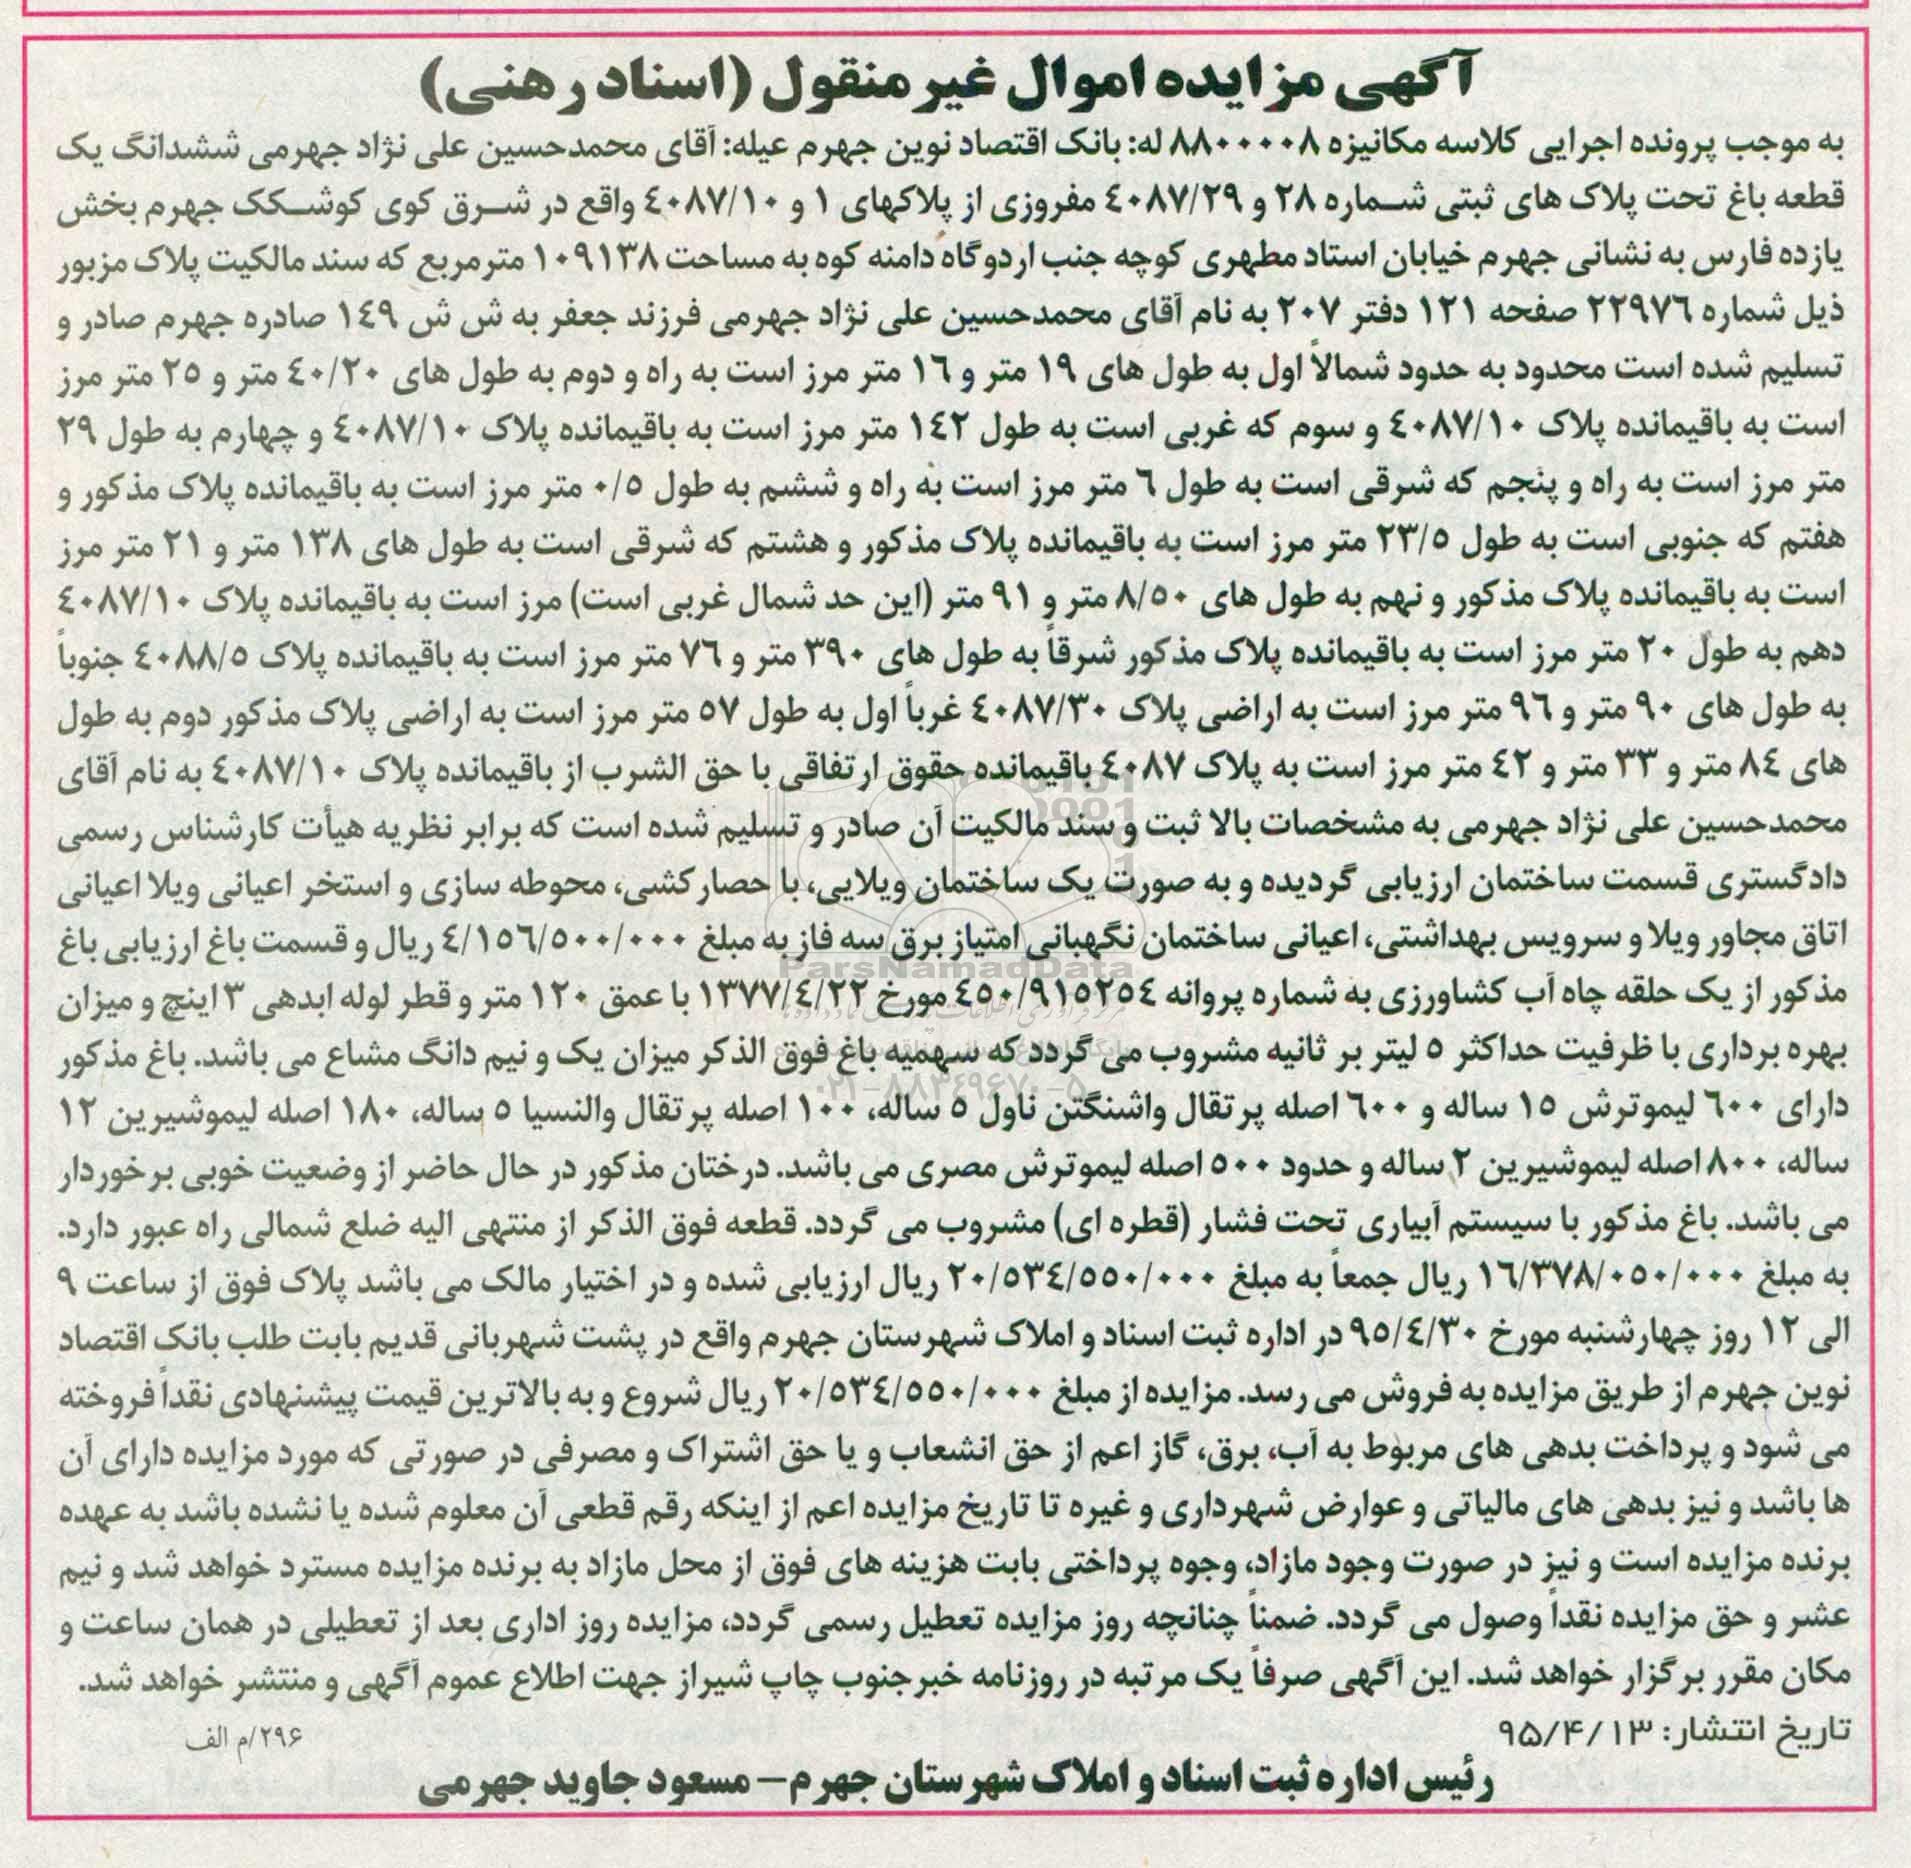 آگهی مزایده اموال غیر منقول (اسناد رهنی)
به موجب پرونده اجرایی کلاسه مکانیزه ۸۸۰۰۰۰۸ له: بانک اقتصاد نوین جهرم عیله: آقای محمدحسین علی نژاد جهرمی ششدانگ یک
قطعه باغ تحت پلاک های ثبتی شماره ۲۸ و ۴۰۸۷/۲۹ مفروزی از پلاکهای ۱ و ۴۰۸۷/۱۰ واقع در شرق کوی کوشکک جهرم بخش
یازده فارس به نشانی جهرم خیابان استاد مطهری کوچه جنب اردوگاه دامنه کوه به مساحت ۱۰۹۱۳۸ مترمربع که سند مالکیت پلاک مزبور
ذیل شماره ۲۲۹۷۶ صفحه ۱۲۱ دفتر ۲۰۷ به نام آقای محمدحسین علی نژاد جهرمی فرزند جعفر به ش ش ۱۴۹ صادره جهرم صادر و
تسلیم شده است محدود به حدود شمالاً اول به طول های ۱۹ متر و ۱۶ متر مرز است به راه و دوم به طول های ۴۰/۲۰ متر و ۲۵ متر مرز
است به باقیمانده پلاک ۴۰۸۷/۱۰ و سوم که غربی است به طول ۱۴۲ متر مرز است به باقیمانده پلاک ۴۰۸۷/۱۰ و چهارم به طول ۲۹
متر مرز است به راه و پنجم که شرقی است به طول ۶ متر مرز است به راه و ششم به طول ۰/۵ متر مرز است به باقیمانده پلاک مذکور و
هفتم که جنوبی است به طول ۲۳/۵ متر مرز است به باقیمانده پلاک مذکور و هشتم که شرقی است به طول های ۱۳۸ متر و ۲۱ متر مرز
است به باقیمانده پلاک مذکور و نهم به طول های ۸/۵۰ متر و ۹۱ متر (این حد شمال غربی است) مرز است به باقیمانده پلاک ۴۰۸۷/۱۰
دهم به طول ۲۰ متر مرز است به باقیمانده پلاک مذکور شرقاً به طول های ۳۹۰ متر و ۷۶ متر مرز است به باقیمانده پلاک ۴۰۸۸/۵ جنوباً
به طول های ۹۰ متر و ۹۶ متر مرز است به اراضی پلاک ۴۰۸۷/۳۰ غرباً اول به طول ۵۷ متر مرز است به اراضی پلاک مذکور دوم به طول
های ۸۴ متر و ۳۳ متر و ۴۲ متر مرز است به پلاک ۴۰۸۷ باقیمانده حقوق ارتفاقی با حق الشرب از باقیمانده پلاک ۴۰۸۷/۱۰ به نام آقای
محمدحسین علی نژاد جهرمی به مشخصات بالا ثبت و سند مالکیت آن صادر و تسلیم شده است که برابر نظریه هیأت کارشناس رسمی
دادگستری قسمت ساختمان ارزیابی گردیده و به صورت یک ساختمان ویلایی، با حصارکشی، محوطه سازی و استخر اعیانی ویلا اعیانی
اتاق مجاور ویلا و سرویس بهداشتی، اعیانی ساختمان نگهبانی امتیاز برق سه فاز به مبلغ ۴/۱۵۶/۵۰۰/۰۰۰ ریال و قسمت باغ ارزیابی باغ
ParsNamadData
مذکور از یک حلقه چاه آب کشاورزی به شماره پروانه ۴۵۰/۹۱۵۲۵۴ مورخ ۱۳۷۷/۴/۲۲ با عمق ۱۲۰ متر و قطر لوله ابدهی ۳ اینچ و میزان
بهره برداری با ظرفیت حداکثر ۵ لیتر بر ثانیه مشروب می گردد که سهمیه باغ فوق الذکر میزان یک و نیم دانگ مشاع می باشد. باغ مذکور
۰۲۱-۸۸۳۴۹۶۷۰-۵
دارای ۶۰۰ لیموترش ۱۵ ساله و ۶۰۰ اصله پرتقال واشنگتن ناول ۵ ساله، ۱۰۰ اصله پرتقال والنسیا ۵ ساله، ۱۸۰ اصله لیموشیرین ۱۲
ساله، ۸۰۰ اصله لیموشیرین ۲ ساله و حدود ۵۰۰ اصله لیموترش مصری می باشد. درختان مذکور در حال حاضر از وضعیت خوبی برخوردار
می باشد. باغ مذکور با سیستم آبیاری تحت فشار (قطره ای) مشروب می گردد. قطعه فوق الذکر از منتهی الیه ضلع شمالی راه عبور دارد.
به مبلغ ۱۶/۳۷۸/۰۵۰/۰۰۰ ریال جمعاً به مبلغ ۲۰/۵۳۴/۵۵۰/۰۰۰ ریال ارزیابی شده و در اختیار مالک می باشد پلاک فوق از ساعت ۹
الی ۱۲ روز چهارشنبه مورخ ۹۵/۴/۳۰ در اداره ثبت اسناد و املاک شهرستان جهرم واقع در پشت شهربانی قدیم بابت طلب بانک اقتصاد
نوین جهرم از طریق مزایده به فروش می رسد. مزایده از مبلغ ۲۰/۵۳۴/۵۵۰/۰۰۰ ریال شروع و به بالاترین قیمت پیشنهادی نقداً فروخته
می شود و پرداخت بدهی های مربوط به آب، برق، گاز اعم از حق انشعاب و یا حق اشتراک و مصرفی در صورتی که مورد مزایده دارای آن
ها باشد و نیز بدهی های مالیاتی و عوارض شهرداری و غیره تا تاریخ مزایده اعم از اینکه رقم قطعی آن معلوم شده یا نشده باشد به عهده
برنده مزایده است و نیز در صورت وجود مازاد، وجوه پرداختی بابت هزینه های فوق از محل مازاد به برنده مزایده مسترد خواهد شد و نیم
عشر و حق مزایده نقداً وصول می گردد. ضمناً چنانچه روز مزایده تعطیل رسمی گردد، مزایده روز اداری بعد از تعطیلی در همان ساعت و
مکان مقرر برگزار خواهد شد. این آگهی صرفاً یک مرتبه در روزنامه خبرجنوب چاپ شیراز جهت اطلاع عموم آگهی و منتشر خواهد شد.
تاریخ انتشار: ۹۵/۴/۱۳
۲۹۶/م الف
رئیس اداره ثبت اسناد و املاک شهرستان جهرم – مسعود جاوید جهرمی